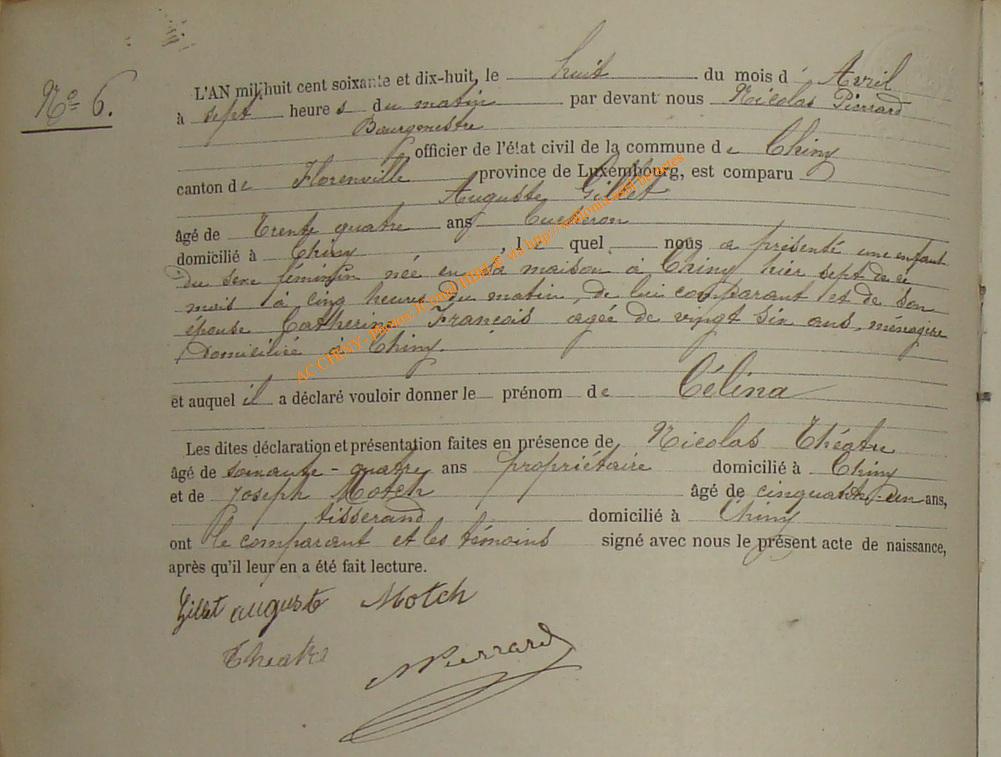 No 6.
L'AN mil huit cent soixante et dix-huit, le huit du mois d' Avril
à sept heure s du matin par devant nous Nicolas Pierrard
Bourgmestre
officier de l'état civil de la commune de Chiny
canton de Florenville province de Luxembourg, est comparu
Auguste Gillet
âgé de Trente quatre ans
domicilié à Chiny, le quel nous a présenté une enfant
du sexe féminin née en sa maison à Chiny hier sept de ce
mois à cinq heures du matin, de lui comparant et de son
épouse Catherine François agée de vingt six ans, ménagère
domiciliée à Chiny.
et auquel il a déclaré vouloir donner le prénom de Célina
Les dites déclaration et présentation faites en présence de Nicolas Théatre
âgé de soixante-quatre ans propriétaire domicilié à Chiny
et de Joseph Motch âgé de cinquante-un ans,
tisserand domicilié à Chiny
ont le comparant et les témoins signé avec nous le présent acte de naissance,
après qu'il leur en a été fait lecture.
Gillet auguste Motch
Theatre NPierrard